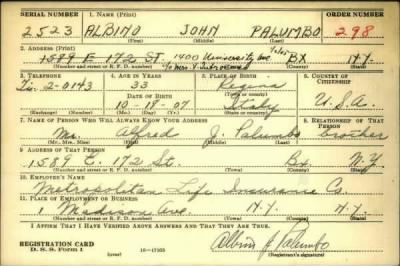 SERIAL NUMBER 1. NAME (Print) ORDER NUMBER
2523 ALBINO JOHN PALUMBO 298
(First) (Middle) (Last)
2. ADDRESS (Print)
1589 E. 172 ST. 1400 University Ave BX N.Y.
(Number and street or R. F. D. number) (Town) (County) (State)
3. TELEPHONE 4. AGE IN YEARS 5. PLACE OF BIRTH 6. COUNTRY OF CITIZENSHIP
33 Regina
2-0143 DATE OF BIRTH (Town or county)
10-18-07 Italy U.S.A.
(Exchange) (Number) (Mo.) (Day) (Yr.) (State or country)
7. NAME OF PERSON WHO WILL ALWAYS KNOW YOUR ADDRESS 8. RELATIONSHIP OF THAT PERSON
Mr. Alfred J. Palumbo brother
(Mr., Mrs., Miss) (First) (Middle) (Last)
9. ADDRESS OF THAT PERSON
1589 E. 172 St. Bx. N.Y.
(Number and street or R. F. D. number) (Town) (County) (State)
10. EMPLOYER'S NAME
Metropolitan Life Insurance Co.
11. PLACE OF EMPLOYMENT OR BUSINESS
1 Madison Ave. N.Y. N.Y.
(Number and street or R. F. D. number) (Town) (County) (State)
I AFFIRM THAT I HAVE VERIFIED ABOVE ANSWERS AND THAT THEY ARE TRUE.
REGISTRATION CARD
D. S. S. Form 1 (over) 16-17105 Albino J. Palumbo
(Registrant's signature)